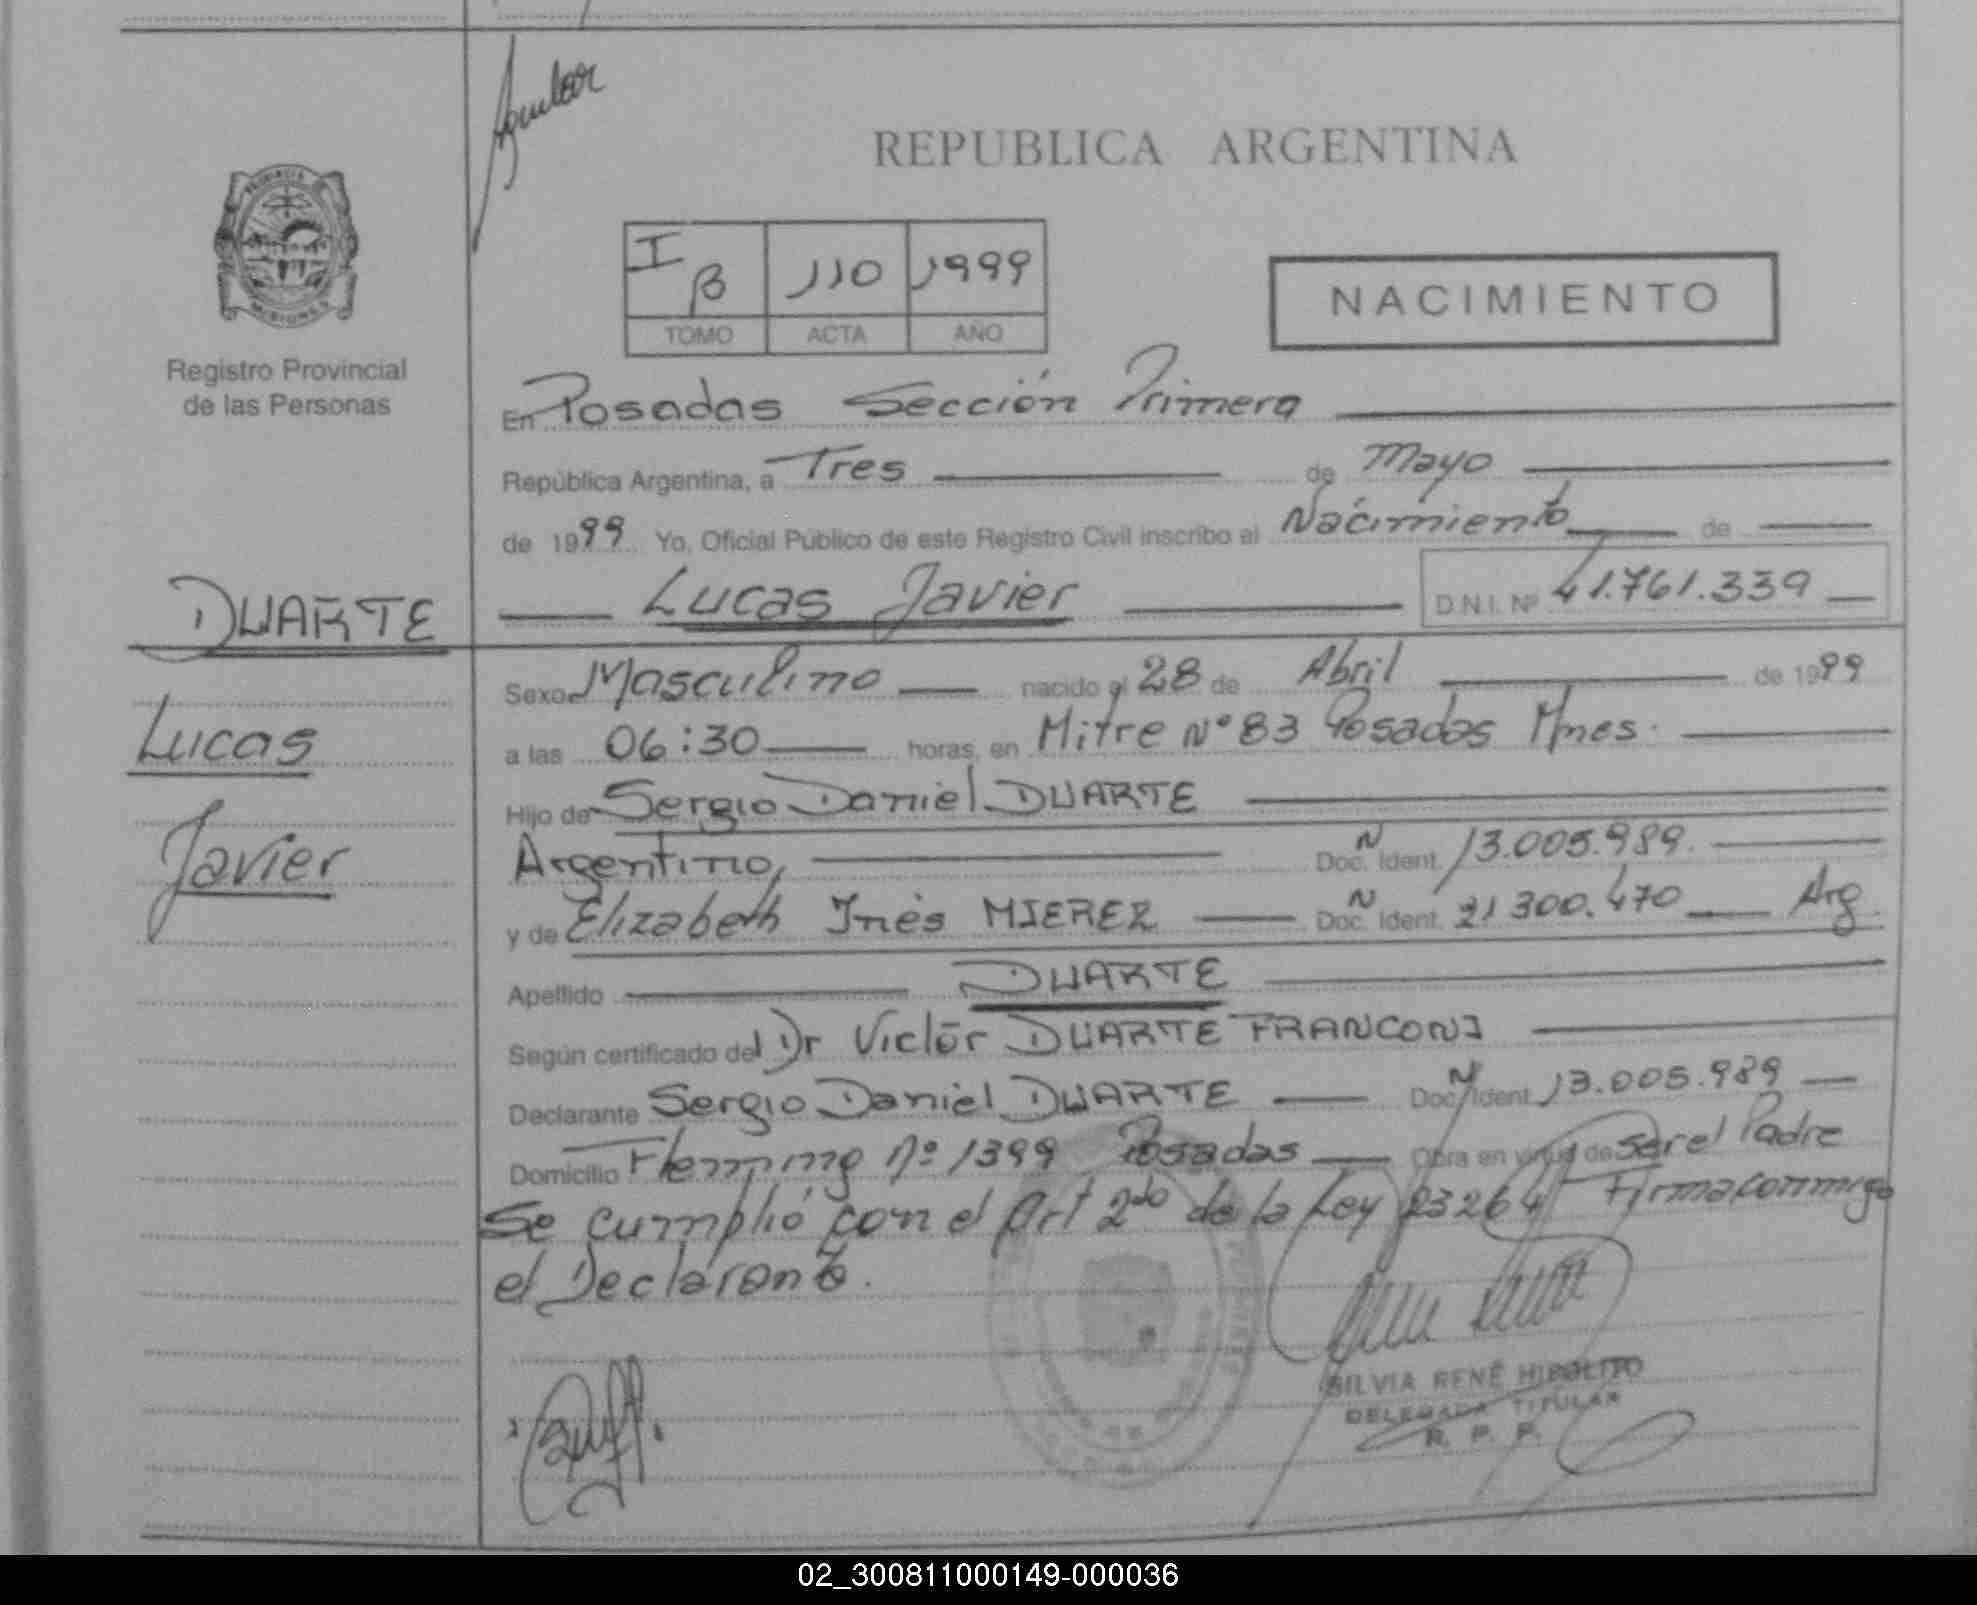 Aguilar
REPUBLICA ARGENTINA
PROVINCIA DE
MISIONES
I B 110 1999
TOMO ACTA AÑO
NACIMIENTO
Registro Provincial
de las Personas
En Posadas Sección Primera
República Argentina, a Tres de Mayo
de 1999 Yo, Oficial Público de este Registro Civil inscribo el Nacimiento de
Lucas Javier D.N.I. Nº 41.761.339
DUARTE
Lucas
Javier
Sexo Masculino nacido el 28 de Abril de 1999
a las 06:30 horas, en Mitre Nº 83 Posadas Mnes.
Hijo de Sergio Daniel DUARTE
Argentino, Doc. Ident. N 13.005.989.
y de Elizabeth Inés MIEREZ Doc. Ident. N 21 300.470 Arg
Apellido DUARTE
Según certificado del Dr Victor DUARTE FRANCONI
Declarante Sergio Daniel DUARTE Doc. Ident. N 13.005.989
Domicilio Flemming nº 1399 Posadas Obra en virtud de ser el Padre
Se cumplió con el Art 2do de la Ley 23264 Firma conmigo
el Declarante.
SILVIA RENÉ HIPOLITO
DELEGADA TITULAR
R. P. P.
02_300811000149-000036